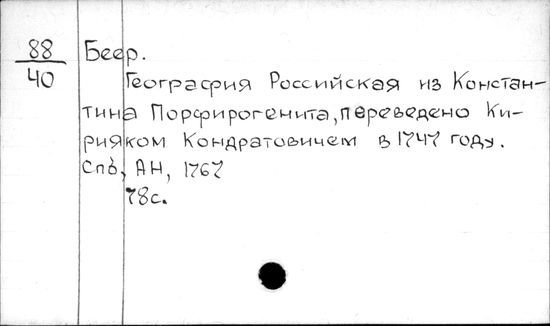 88
40
Беер.
География Российская из Констан-
тина Порфирогенита, переведено Ки-
рияком Кондратовичем в 1747 году.
Спб, АН, 1767
78с.